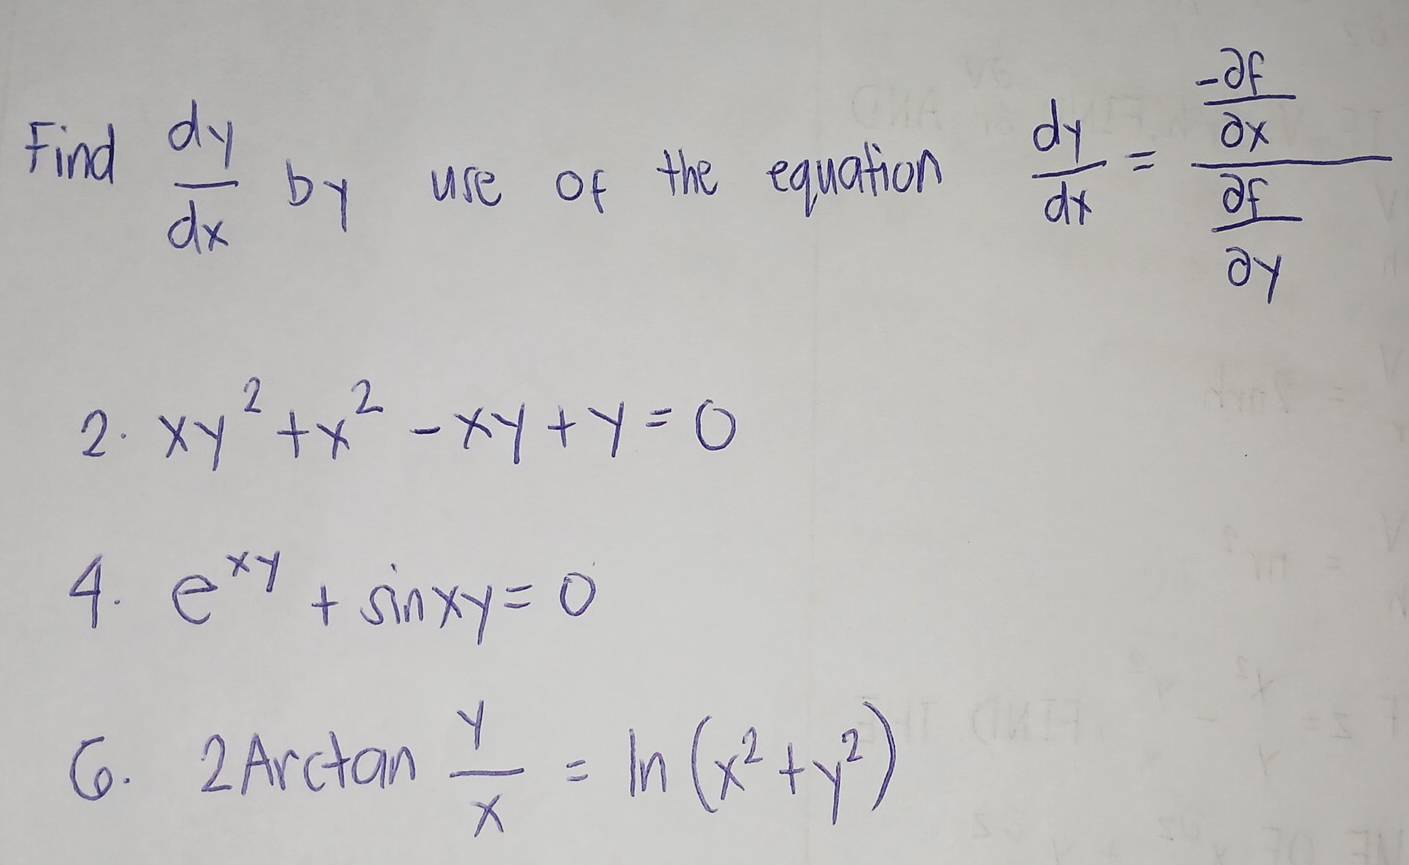 Find dy/dx by use of the equation dy/dx = (-∂f/∂x)/(∂f/∂y)
2. xy² + x² - xy + y = 0
4. e^xy + sinxy = 0
6. 2Arctan y/x = ln(x² + y²)